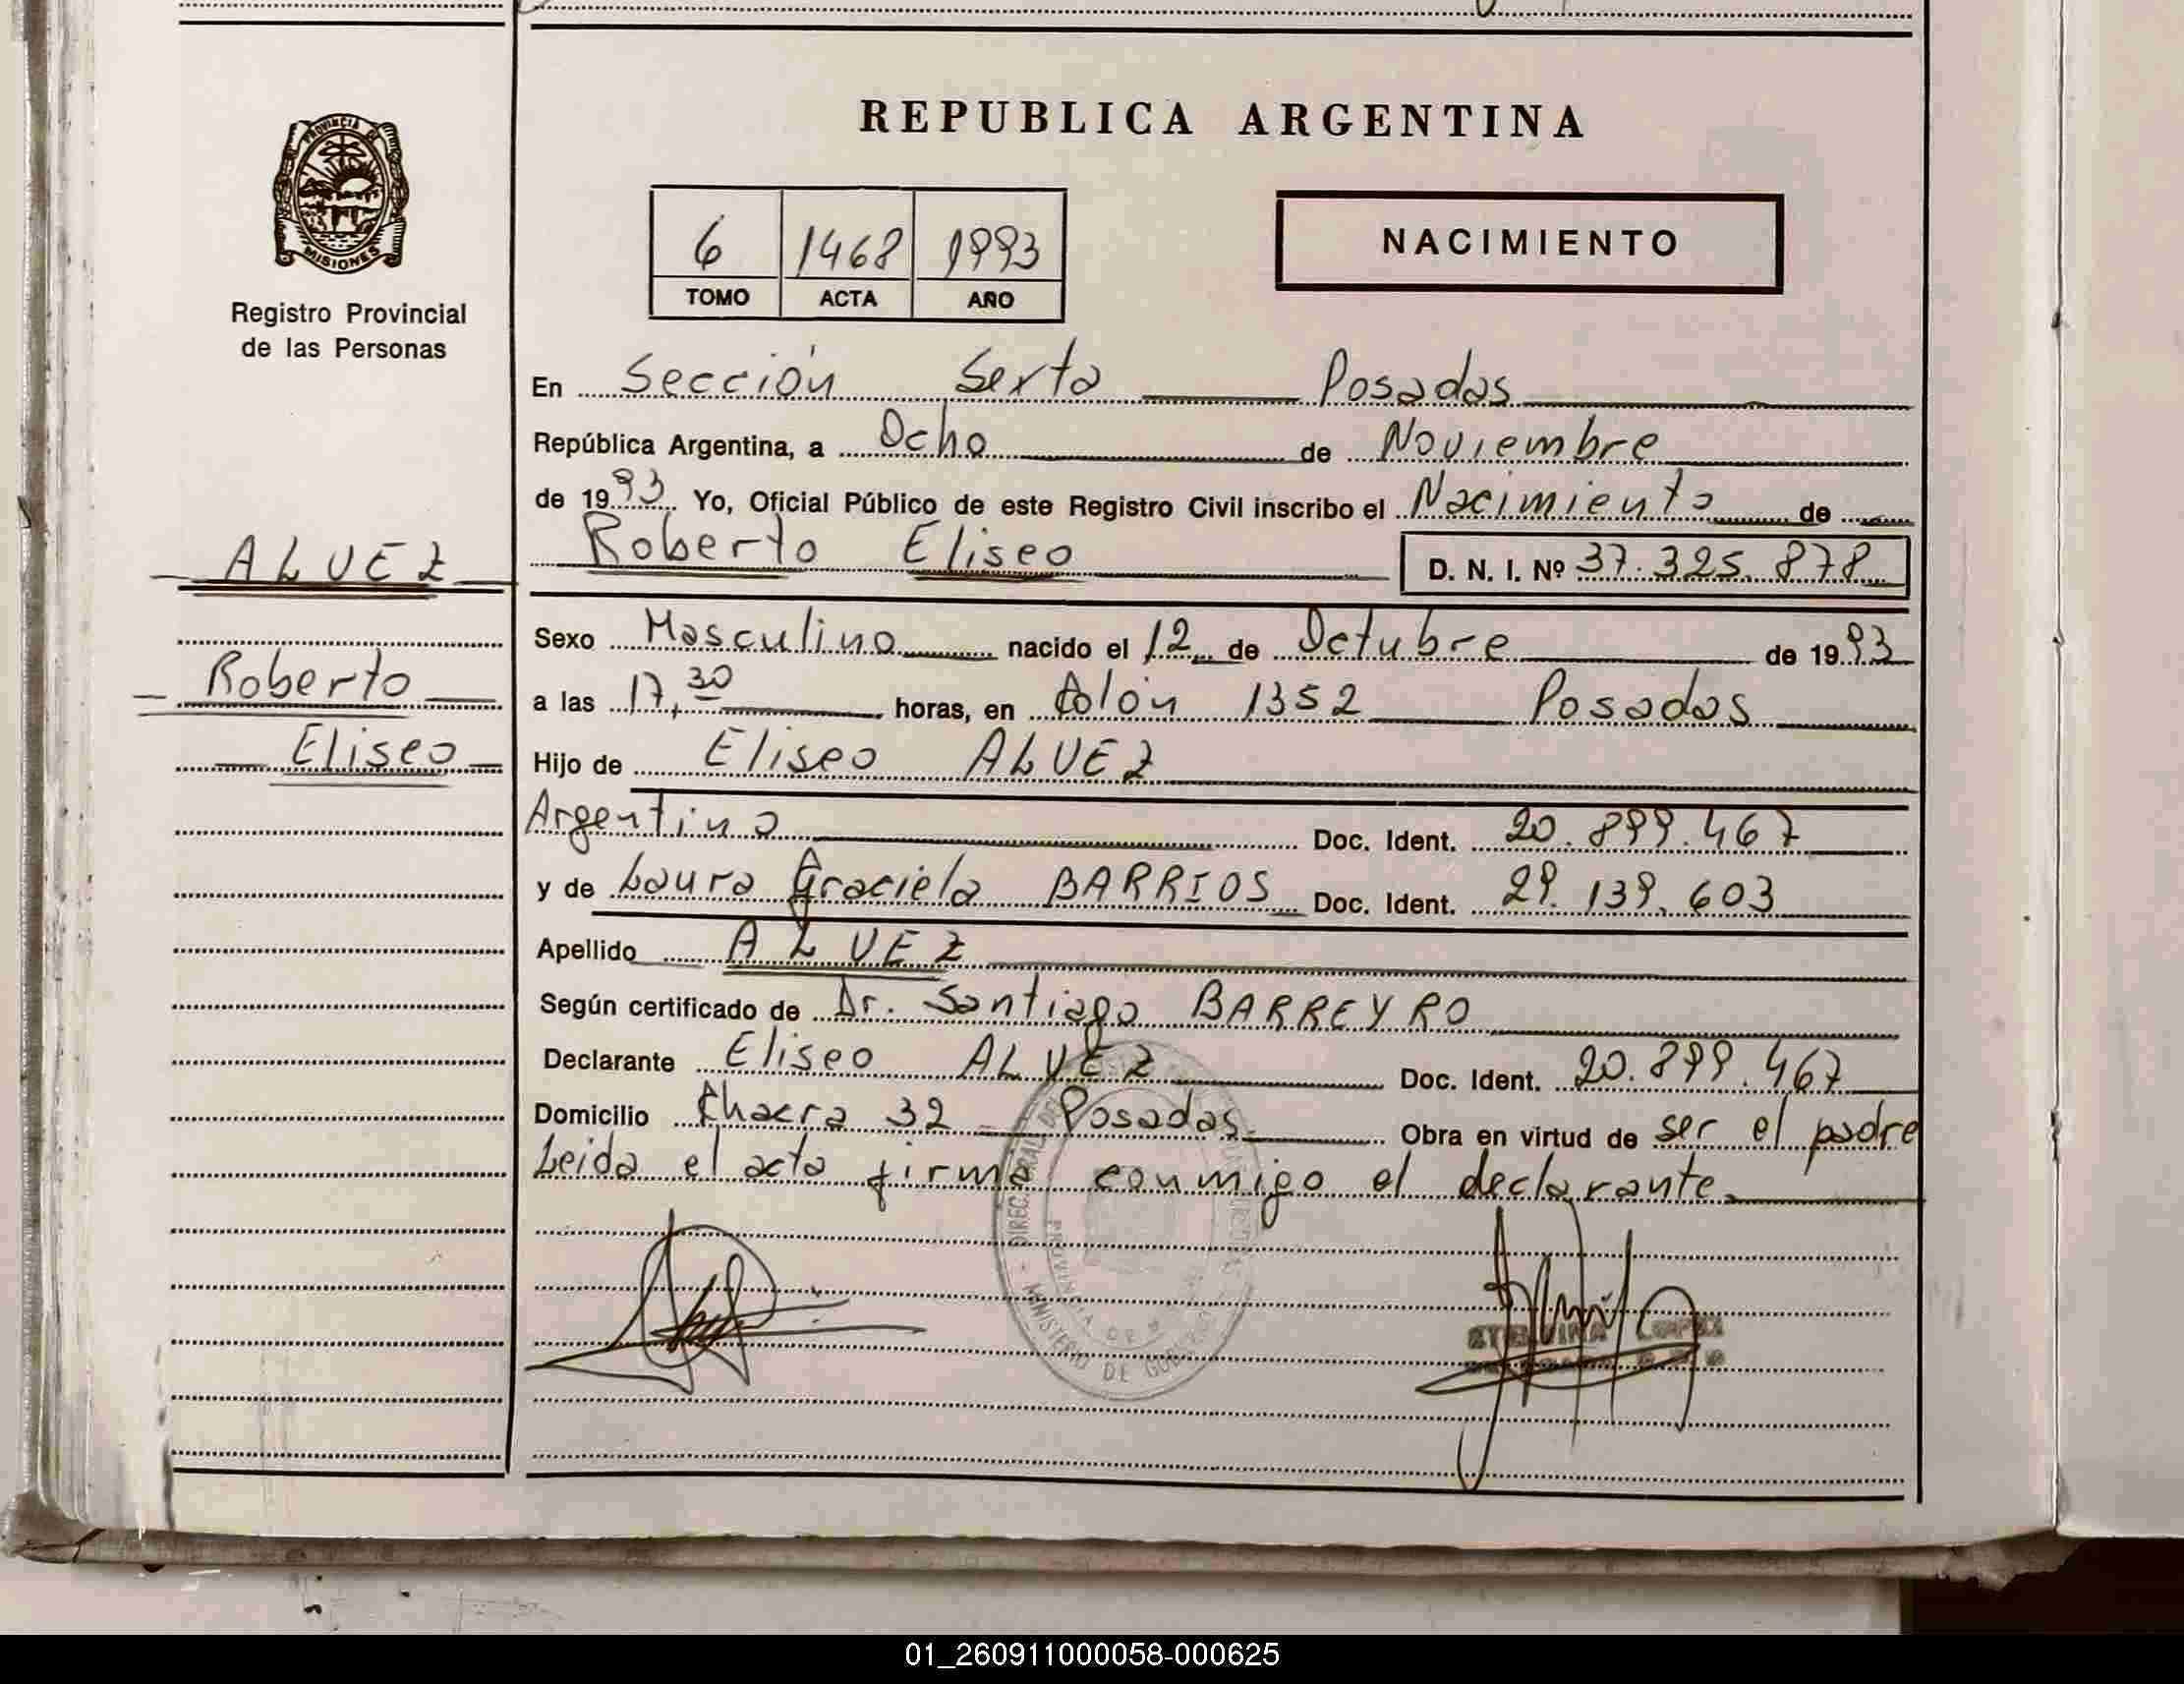 REPUBLICA ARGENTINA
PROVINCIA DE
MISIONES
Registro Provincial
de las Personas
6 1468 1993
TOMO ACTA AÑO
NACIMIENTO
En Sección Sexta Posadas
República Argentina, a Ocho de Noviembre
de 1993 Yo, Oficial Público de este Registro Civil inscribo el Nacimiento de
ALVEZ
Roberto Eliseo D. N. I. Nº 37.325.878
Sexo Masculino nacido el 12 de Octubre de 1993
Roberto
a las 17,30 horas, en Colón 1352 Posadas
Eliseo
Hijo de Eliseo ALVEZ
Argentino Doc. Ident. 20.899.467
y de Laura Graciela BARRIOS Doc. Ident. 29.139.603
Apellido ALVEZ
Según certificado de Dr. Santiago BARREYRO
Declarante Eliseo ALVEZ Doc. Ident. 20.899.467
Domicilio Chacra 32 Posadas Obra en virtud de ser el padre
Leida el acta firma conmigo el declarante
MINISTERIO DE
PROVINCIA DE
01_260911000058-000625